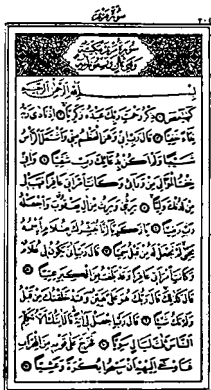 سورة مريم
سورة مريم مكية
بسم الله الرحمن الرحيم
كهيعص ذكر رحمت ربك عبده زكريا اذ نادى ربه
نداء خفيا قال رب انى وهن العظم منى واشتعل الرأس
شيبا ولم اكن بدعائك رب شقيا وانى
خفت الموالى من ورائى وكانت امرأتى عاقرا فهب لى
من لدنك وليا يرثنى ويرث من آل يعقوب واجعله
رب رضيا يا زكريا انا نبشرك بغلام اسمه
يحيى لم نجعل له من قبل سميا قال رب انى يكون لى غلام
وكانت امرأتى عاقرا وقد بلغت من الكبر عتيا
قال كذلك قال ربك هو على هين وقد خلقتك من قبل
ولم تك شيئا قال رب اجعل لى آية قال آيتك الا تكلم
الناس ثلاث ليال سويا فخرج على قومه من المحراب
فاوحى اليهم ان سبحوا بكرة وعشيا